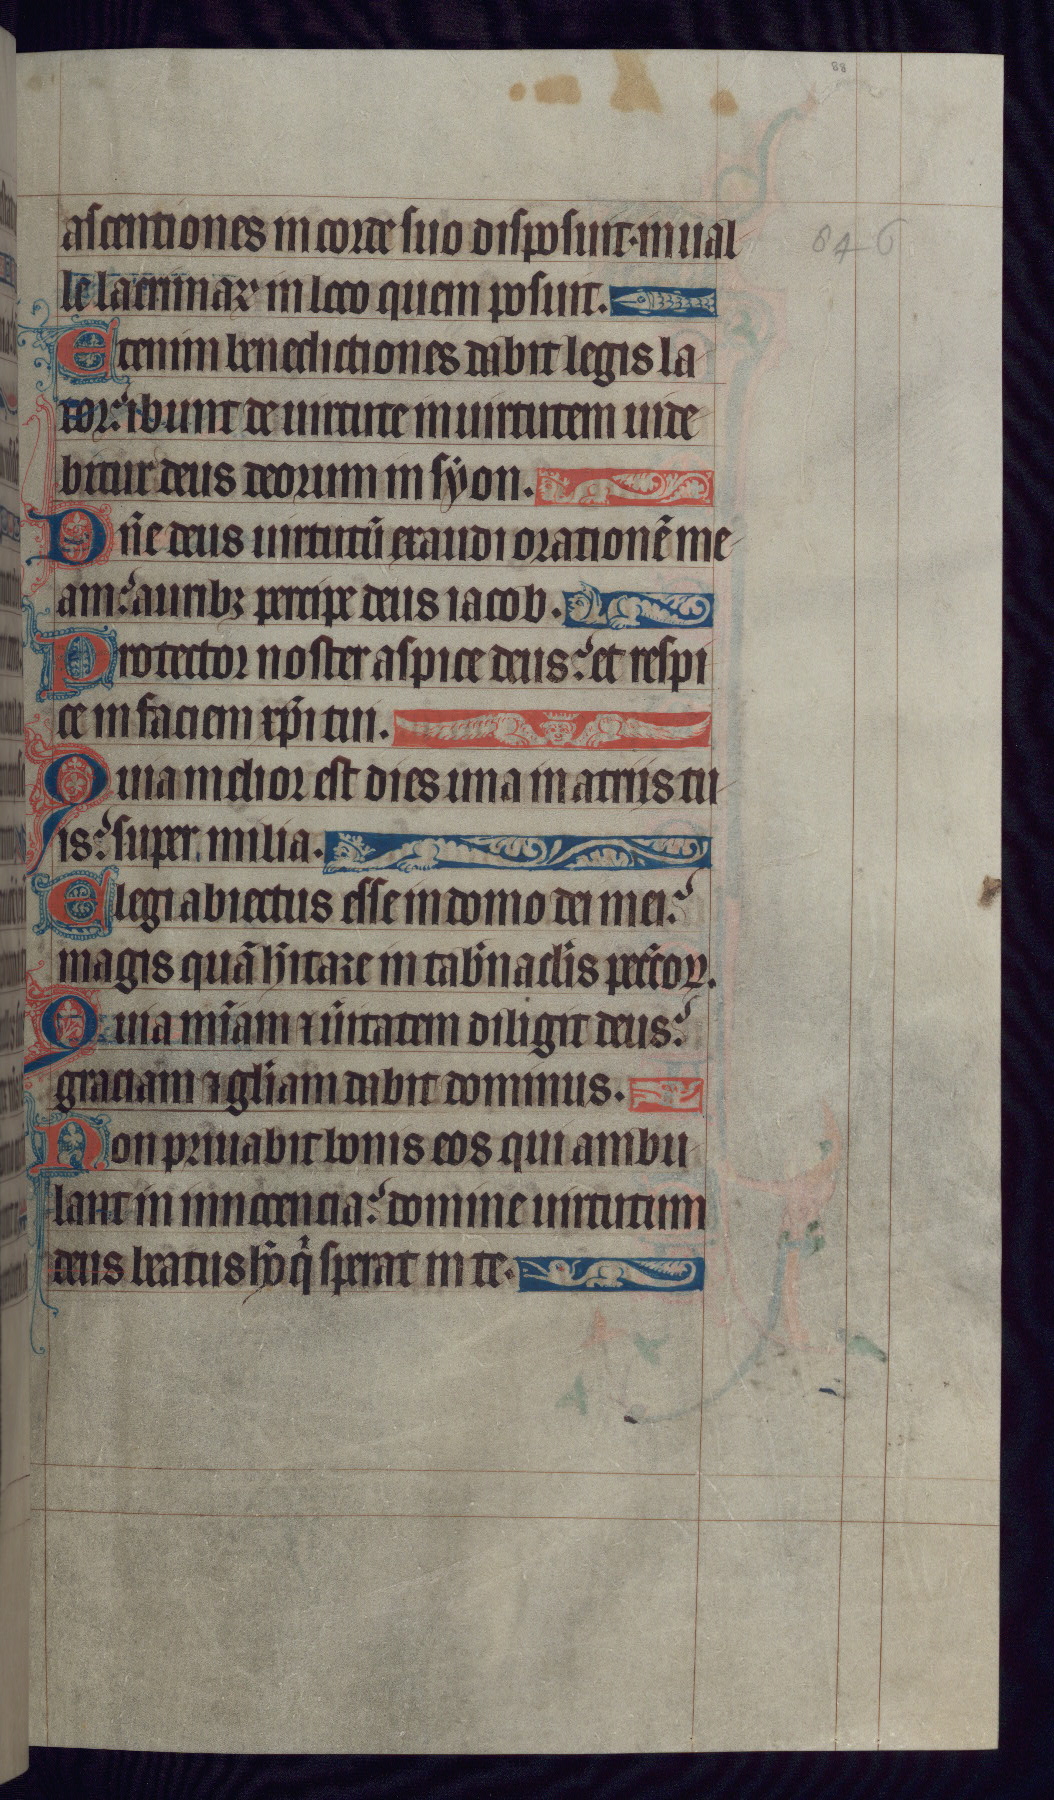 88
ascentiones in corde suo disposuit·in ual
84-6
le lacrimaꝝ in loco quem posuit.
Etenim benedictiones dabit legis la
tor:ibunt de uirtute in uirtutem uide
bitur deus deorum in syon.
Dñe deus uirtutū exaudi orationē me
am:auribꝫ percipe deus iacob.
Protector noster aspice deus:et respi
ce in faciem xp̄i tui.
Quia melior est dies una in atriis tu
is:super milia.
Elegi abiectus esse in domo dei mei:
magis quā hītare in tab̄naclis pecc̄oꝝ.
Quia mīam ⁊ ūitatem diligit deus:
graciam ⁊ gl̄iam dabit dominus.
Non priuabit bonis eos qui ambu
lant in innocencia:domine uirtutum
deus beatus hō q̄ sperat in te.